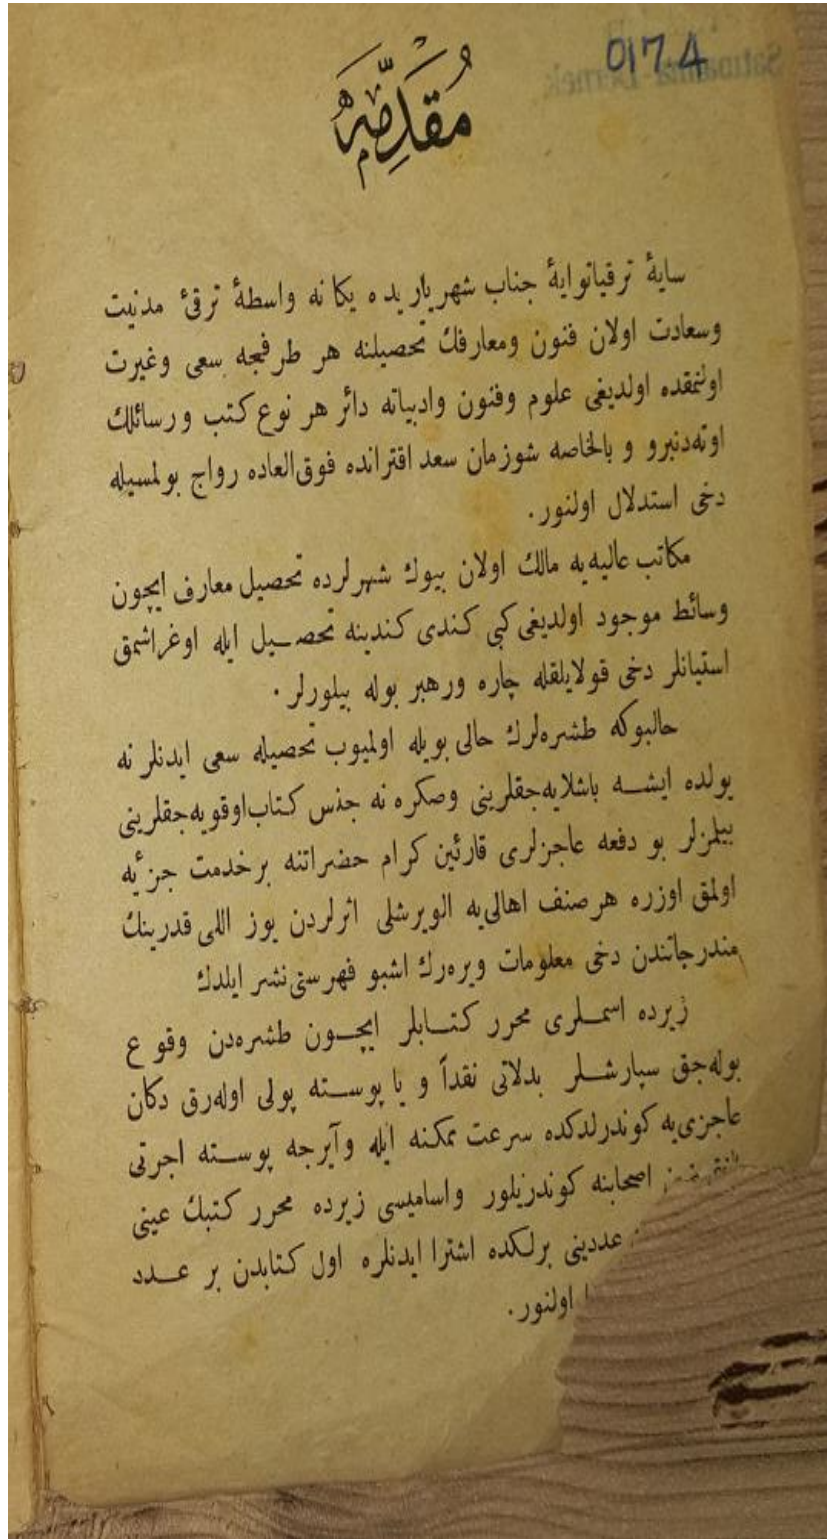 0174
مقدّمه
سایهٔ ترقیاتوایهٔ جناب شهریاریده یکانه واسطهٔ ترقیٔ مدنیت
وسعادت اولان فنون ومعارفك تحصیلنه هر طرفجه سعی وغیرت
اولنمقده اولدیغی علوم وفنون وادبیاته دائر هر نوع کتب ورسائلك
اوته‌دنبرو و بالخاصه شوزمان سعد اقترانده فوق‌العاده رواج بولمسیله
دخی استدلال اولنور.
مکاتب عالیه‌یه مالك اولان بیوك شهرلرده تحصیل معارف ایچون
وسائط موجود اولدیغی کبی کندی کندینه تحصیل ایله اوغراشمق
استیانلر دخی قولایلقله چاره ورهبر بوله بیلورلر.
حالبوکه طشره‌لرك حالی بویله اولمیوب تحصیله سعی ایدنلر نه
یولده ایشه باشلایه‌جقلرینی وصکره نه جنس کتاب اوقویه‌جقلرینی
بیلمزلر بو دفعه عاجزلری قارئین کرام حضراتنه برخدمت جزئیه
اولمق اوزره هرصنف اهالی‌یه الویرشلی اثرلردن یوز اللی قدرینك
مندرجاتندن دخی معلومات ویره‌رك اشبو فهرستی نشر ایلدك
زیرده اسملری محرر کتابلر ایچون طشره‌دن وقوع
بوله‌جق سپارشلر بدلاتی نقداً و یا پوسته پولی اوله‌رق دکان
عاجزی‌یه کوندرلدکده سرعت ممکنه ایله وآیرجه پوسته اجرتی
اصحابنه کوندریلور واسامیسی زیرده محرر کتبك عینی
عددینی برلکده اشترا ایدنلره اول کتابدن بر عدد
اولنور.